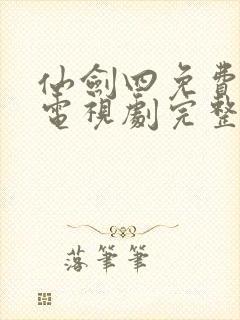 仙劍四免費
電視劇完整
落筆筆